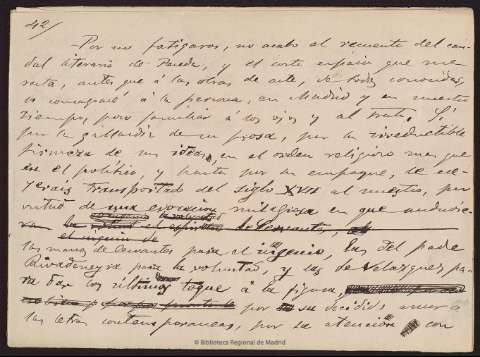 42/
-Por no fatigaros, no acabo el recuento del cau-
dal literario de Pereda, y el corto espacio que me
resta, antes que á las obras de arte, de todos conocidas,
lo consagraré á la persona, en Madrid y en nuestro
tiempo, poco familiar á los ojos y al trato. Si
por la gallardía de su prosa, por la irreductible
firmeza de sus ideas, en el orden religioso mas que
en el político, y hasta por su empaque,
transportado del siglo XVII al nuestro, por
virtud de una evocación milagrosa en que anduvie-
ran
las manos de Cervantes para el ingenio, las del padre
Rivadeneyra para la voluntad, y las de Velazquez pa-
ra dar los últimos toques á la figura,
por su decidido amor á
las letras contemporaneas, por su atención con
© Biblioteca Regional de Madrid